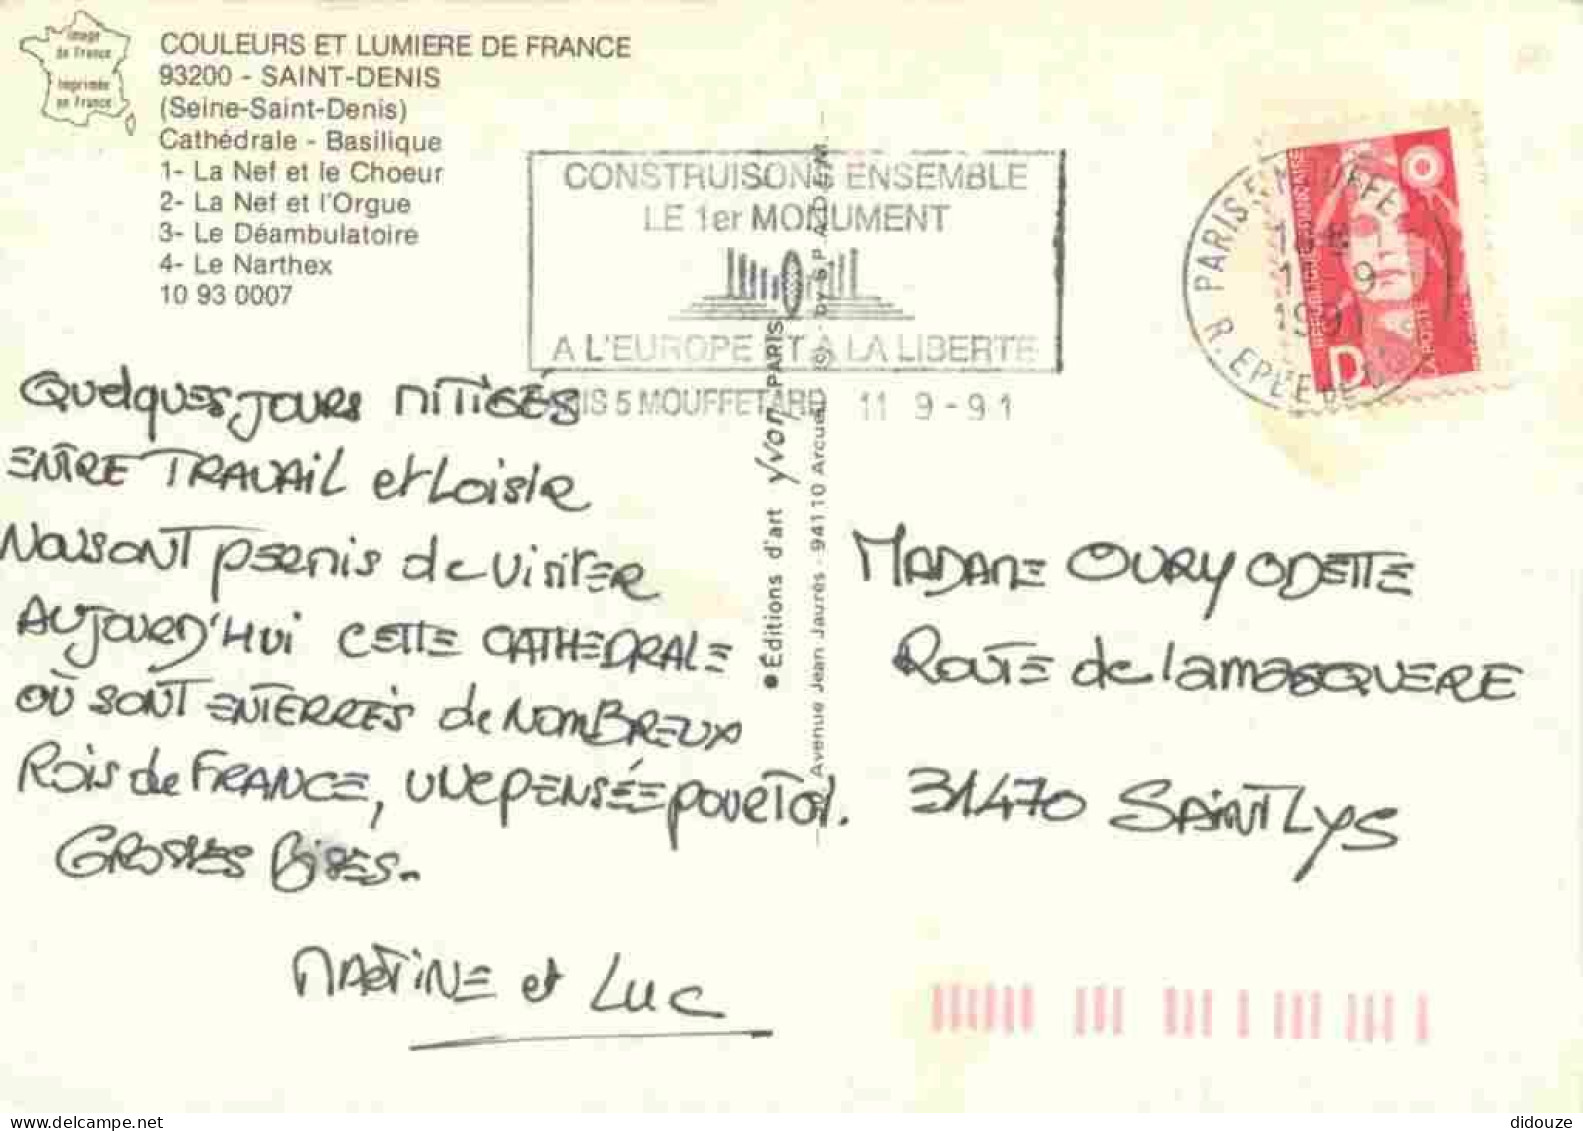 Image
de France
Imprimée
en France
COULEURS ET LUMIERE DE FRANCE
93200 - SAINT-DENIS
(Seine-Saint-Denis)
Cathédrale - Basilique
1- La Nef et le Choeur
2- La Nef et l'Orgue
3- Le Déambulatoire
4- Le Narthex
10 93 0007
CONSTRUISONS ENSEMBLE
LE 1er MONUMENT
A L'EUROPE ET A LA LIBERTE
5 MOUFFETARD 11 9-91
PARIS
R. EPEE DE
9
1991
REPUBLIQUE FRANÇAISE
LA POSTE
D
QUELQUES JOURS MITIGÉS
ENTRE TRAVAIL et LOISIR
NOUS ONT PERMIS de VISITER
AUJOURD'HUI CETTE CATHEDRALE
OÙ SONT ENTERRÉS de NOMBREUX
ROIS de FRANCE, UNE PENSÉE POUR TOI.
GROSSES BISES.
MARTINE et LUC
●Éditions d'art yvon PARIS
Avenue Jean Jaurès - 94110 Arcueil
by S.P.A.D.E.M.
MADAME OURY ODETTE
ROUTE de LAMASQUERE
31470 SAINT LYS
didouze